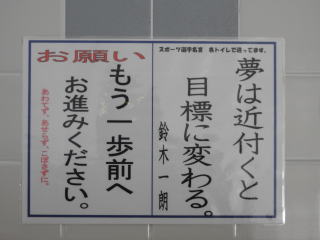 スポーツ選手名言 各トイレで違ってます。
夢は近付くと
目標に変わる。
鈴木一朗
お願い
もう一歩前へ
お進みください。
あわてず、あせらず、こぼさずに。